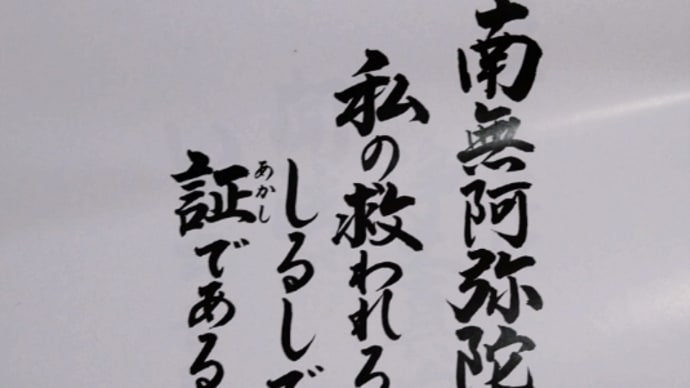 南無阿弥陀
私の救われる
しるしで
証である
あかし